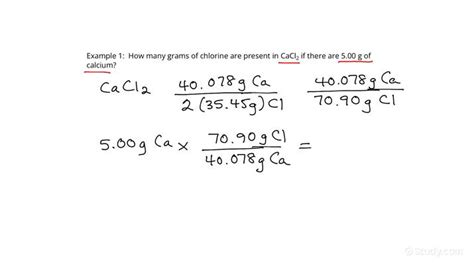 Example 1: How many grams of chlorine are present in CaCl₂ if there are 5.00 g of
calcium?
CaCl2 40.078g Ca / 2(35.45g)Cl 40.078g Ca / 70.90g Cl
5.00g Ca × 70.90g Cl / 40.078g Ca =
Study.com